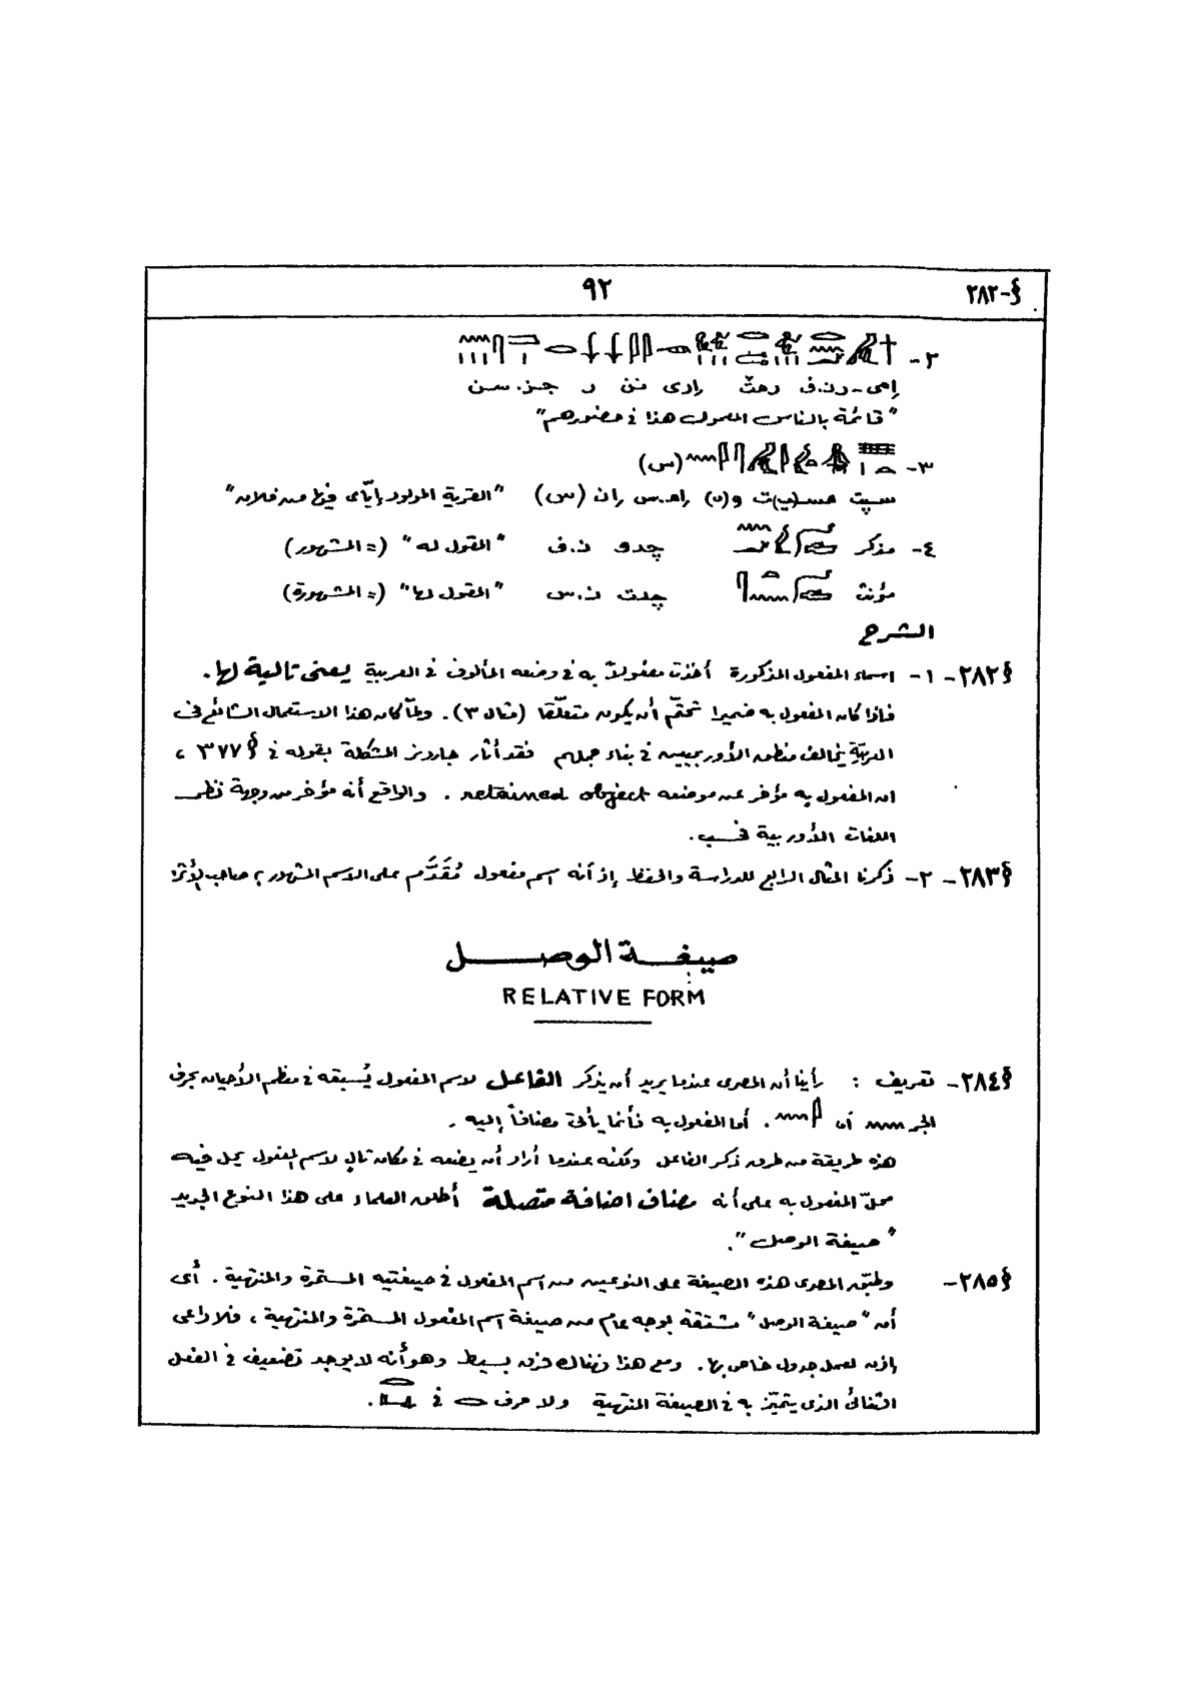 §-٢٨٢
٩٢
٢-
إمى-رن.ف رمث إرى نن ر جز.سن
"قائمة بالناس المعمول هذا في حضورهم"
٣- (س)
سپت مس(ي)ت و(ن) إم.س إن (س) "القرية المولود إيّاى فيها من فلان"
٤- مذكر چدو ن.ف "المقول له" (= المشهور)
مؤنث چدت ن.س "المقول لها" (= المشهورة)
الشرح
§٢٨٢- ١- اسماء المفعول المذكورة أخذت مفعولاً به في وضعه المألوف في العربية يعنى تالية لها.
فإذا كان المفعول به ضميرا تحتّم أن يكون متعلّقا (مثال ٣). ولمّا كان هذا الاستعمال الشائع في
العربيّة يخالف منطق الأوربيين في بناء جملهم فقد أثار جاردنر المشكلة بقوله في §٣٧٧،
ان المفعول به مؤخر عن موضعه retained object. والواقع أنه مؤخر من وجهة نظر
اللغات الأوربية فحسب.
§٢٨٣- ٢- ذكرنا المثال الرابع للدراسة والحفظ إذ أنه اسم مفعول مُقَدَّم على الاسم المشهور به صاحب الأثر
صيغة الوصل
RELATIVE FORM
§٢٨٤- تعريف : رأينا أن المصرى عندما يريد أن يذكر الفاعل لاسم المفعول يُسبقه في معظم الأحيان بحرف
الجر أو . أما المفعول به فأنما يأتى مضافاً إليه.
هذه طريقة من طرق ذكر الفاعل ولكنه عندما أراد أن يضعه في مكان تالٍ لاسم المفعول يحل فيه
محلّ المفعول به على أنه مضاف اضافة متصلة أطلق العلماء على هذا النوع الجديد
"صيغة الوصل".
§٢٨٥- وطبّق المصرى هذه الصيغة على النوعين من اسم المفعول في صيغتيه المستمرة والمنتهية. أى
أن "صيغة الوصل" مشتقة بوجه عام من صيغة اسم المفعول المستمرة والمنتهية، فلا داعى
إذن لعمل جدول خاص بها. ومع هذا فهناك فرق بسيط وهو أنه لا يوجد تضعيف في الفعل
الثنائى الذى يتميّز به في الصيغة المنتهية ولا حرف في .